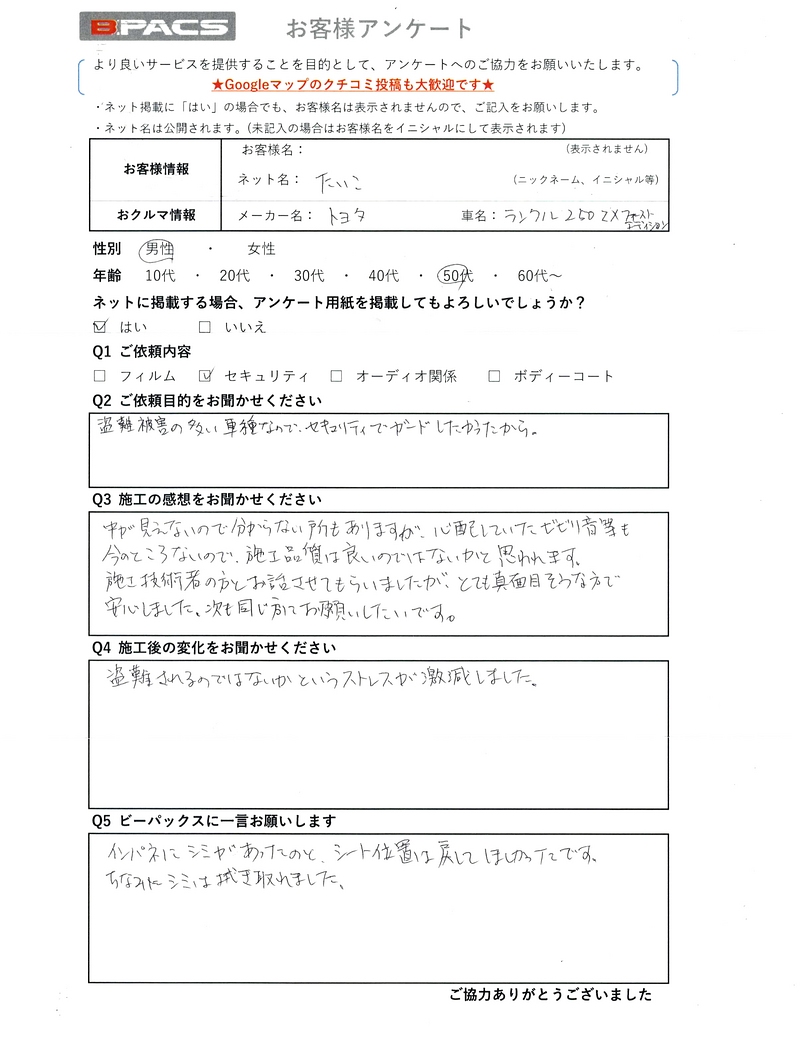 B-PACS お客様アンケート
より良いサービスを提供することを目的として、アンケートへのご協力をお願いいたします。
★Googleマップのクチコミ投稿も大歓迎です★
・ネット掲載に「はい」の場合でも、お客様名は表示されませんので、ご記入をお願いします。
・ネット名は公開されます。(未記入の場合はお客様名をイニシャルにして表示されます)
お客様情報
お客様名： （表示されません）
ネット名： たいこ （ニックネーム、イニシャル等）
おクルマ情報 メーカー名： トヨタ 車名： ランクル 250 ZXファーストエディション
性別 男性 ・ 女性
年齢 10代 ・ 20代 ・ 30代 ・ 40代 ・ 50代 ・ 60代～
ネットに掲載する場合、アンケート用紙を掲載してもよろしいでしょうか？
☑ はい □ いいえ
Q1 ご依頼内容
□ フィルム ☑ セキュリティ □ オーディオ関係 □ ボディーコート
Q2 ご依頼目的をお聞かせください
盗難被害の多い車種なので、セキュリティでガードしたかったから。
Q3 施工の感想をお聞かせください
中が見えないので分からない所もありますが、心配していたビビり音等も
今のところないので、施工品質は良いのではないかと思われます。
施工技術者の方とお話させてもらいましたが、とても真面目そうな方で
安心しました。次も同じ方でお願いしたいです。
Q4 施工後の変化をお聞かせください
盗難されるのではないかというストレスが激減しました。
Q5 ビーパックスに一言お願いします
インパネにシミがあったのと、シート位置は戻してほしかったです。
ちなみにシミは拭き取れました。
ご協力ありがとうございました